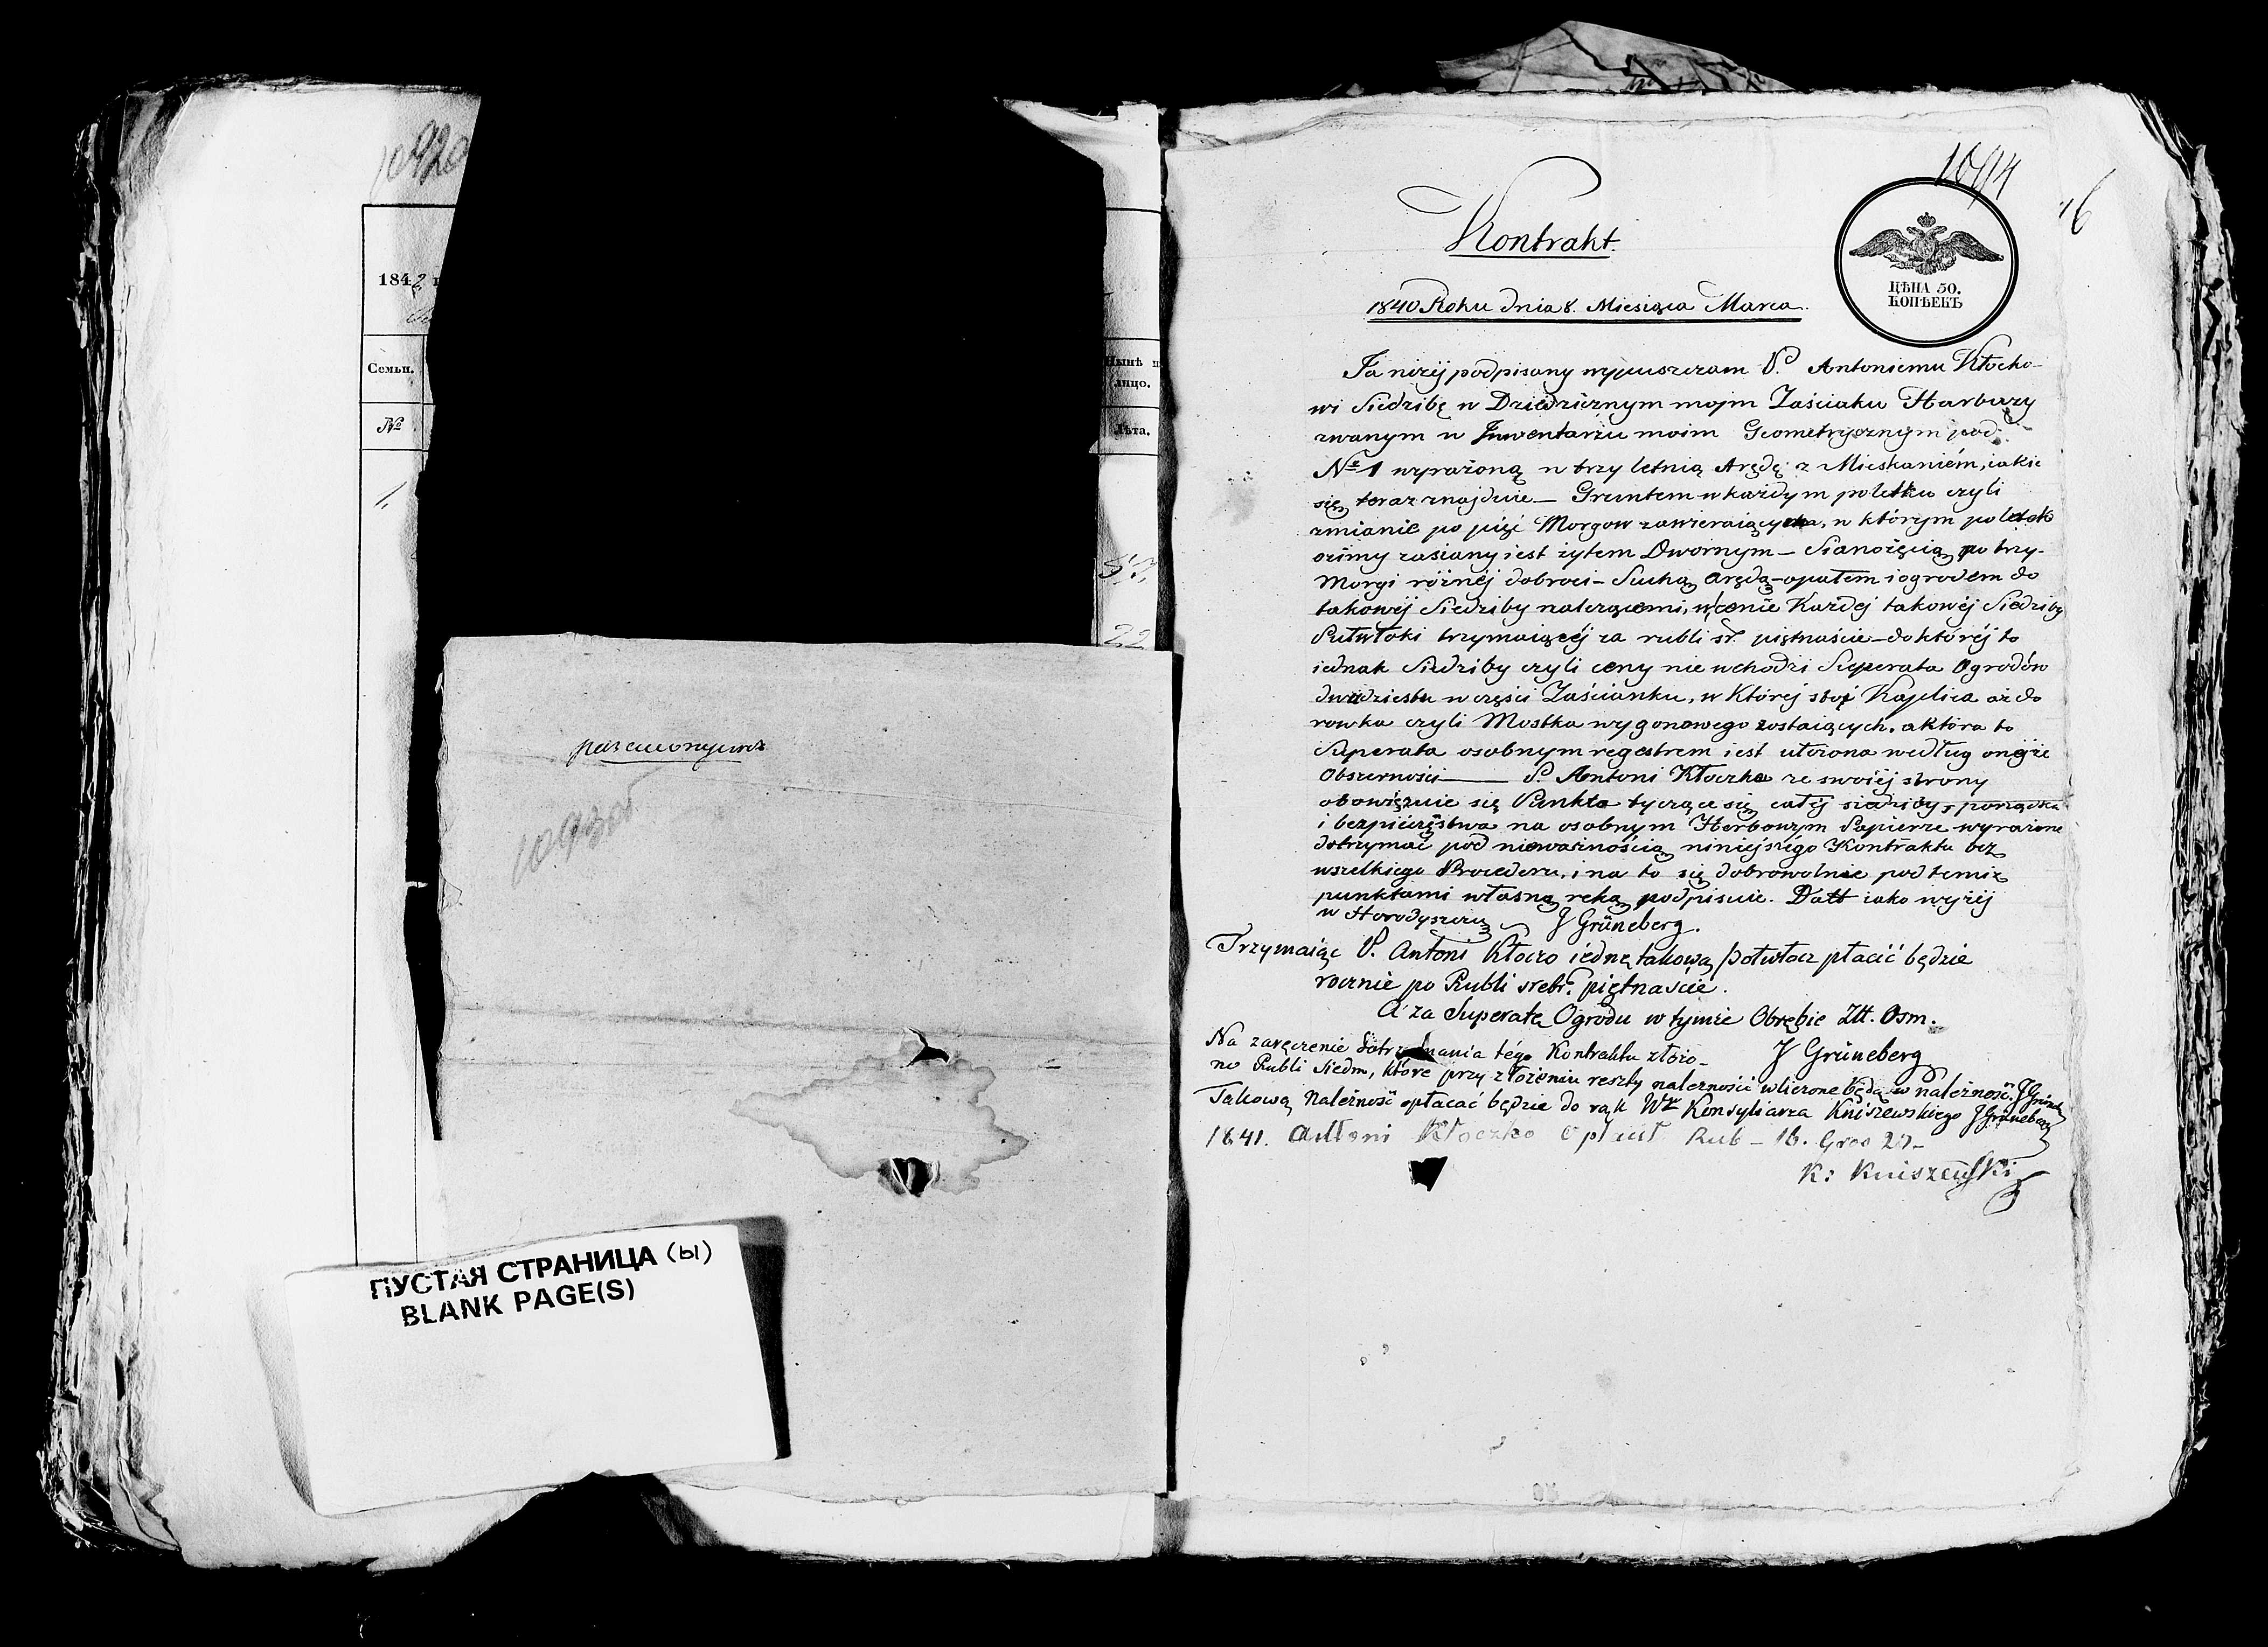 184
Семьи.
№
1.
Нынѣ
лицо.
Лѣта.
22
1093об
ПУСТАЯ СТРАНИЦА (ы)
BLANK PAGE(S)
1094
Kontrakt.
ЦѢНА 50.
КОПѢЕКЪ
1840 Roku dnia 8. Miesiąca Marca.
Ja niżéj podpisany wypuszczam P. Antoniemu Kłocko-
wi Siedzibę w Dziedzicznym mojm Zaściaku Harbuzy
zwanym w Inwentarzu moim Geometrycznym pod
№ 1 wyrażoną w trzy letnią Arędę z Mieszkaniém, iakie
się teraz znajduie — Gruntem w każdym poletku czyli
zmianie po pięć Morgow zawieraiących, w którym poletek
oźimy zasiany iest żytem Dwornym — Sianożęcią po trzy
Morgi róźnéj dobroci — Suchą Arędą — opałem i ogrodem do
takowéj Siedziby należącemi, w cenie Każdej takowéj Siedziby
Pułwłoki trzymaiącéj za rubli sr. piętnaście — do któréj to
iednak Siedziby czyli ceny nie wchodzi Superata Ogrodów
dwudziestu w części Zaścianku, w Któréj stoi Kaplica aż do
rowka czyli Mostka wygonowego zostaiących. a która to
Superata osobnym regestrem iest ułożona według onéjże
Obszerności — P. Antoni Kłoczko ze swoiéj strony
obowiązuie się Punkta tyczące się całéj siedziby, porządku
i bezpiéczęstwa na osobnym Herbowym Papierze wyrażone
dotrzymać pod nieważnością niniejszégo Kontraktu bez
wszelkiego Procederu, i na to się dobrowolnie pod temiż
punktami własną ręką podpisuie. Datt iako wyżéj
w Horodyszczu J Grüneberg.
Trzymaiąc P. Antoni Kłoczo iednę takową połwłocz płacić będzie
rocznie po Rubli srebr. piętnaście.
A za Superatę Ogrodu w tymże Obrębie Złt. Osm.
J Grüneberg
Na zaręczenie dotrzymania tégo Kontraktu złożo-
no Rubli Siedm, które przy złożeniu reszty należności wliczone będą w należność. J Grüneb
Takową Należność opłacać będzie do rąk W Konsyliarza Kniszewskiego J Grüneberg
1841. Antoni Kłoczko opłacił Rub — 16. Gros 27 —
K: Kniszewski